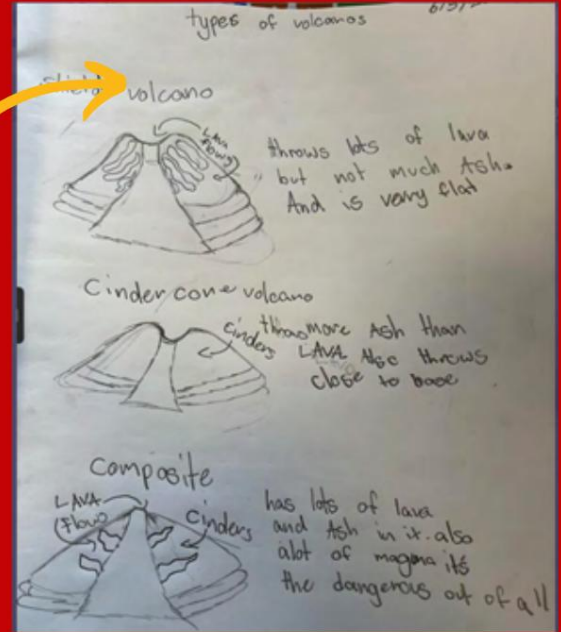 types of volcanos
Shield volcano
LAVA
flows
throws lots of lava
but not much Ash.
And is very flat
Cinder cone volcano
cinders
throws more Ash than
LAVA Also throws
close to base
composite
LAVA
(flow)
cinders
has lots of lava
and Ash in it. also
alot of magma its
the dangerous out of all